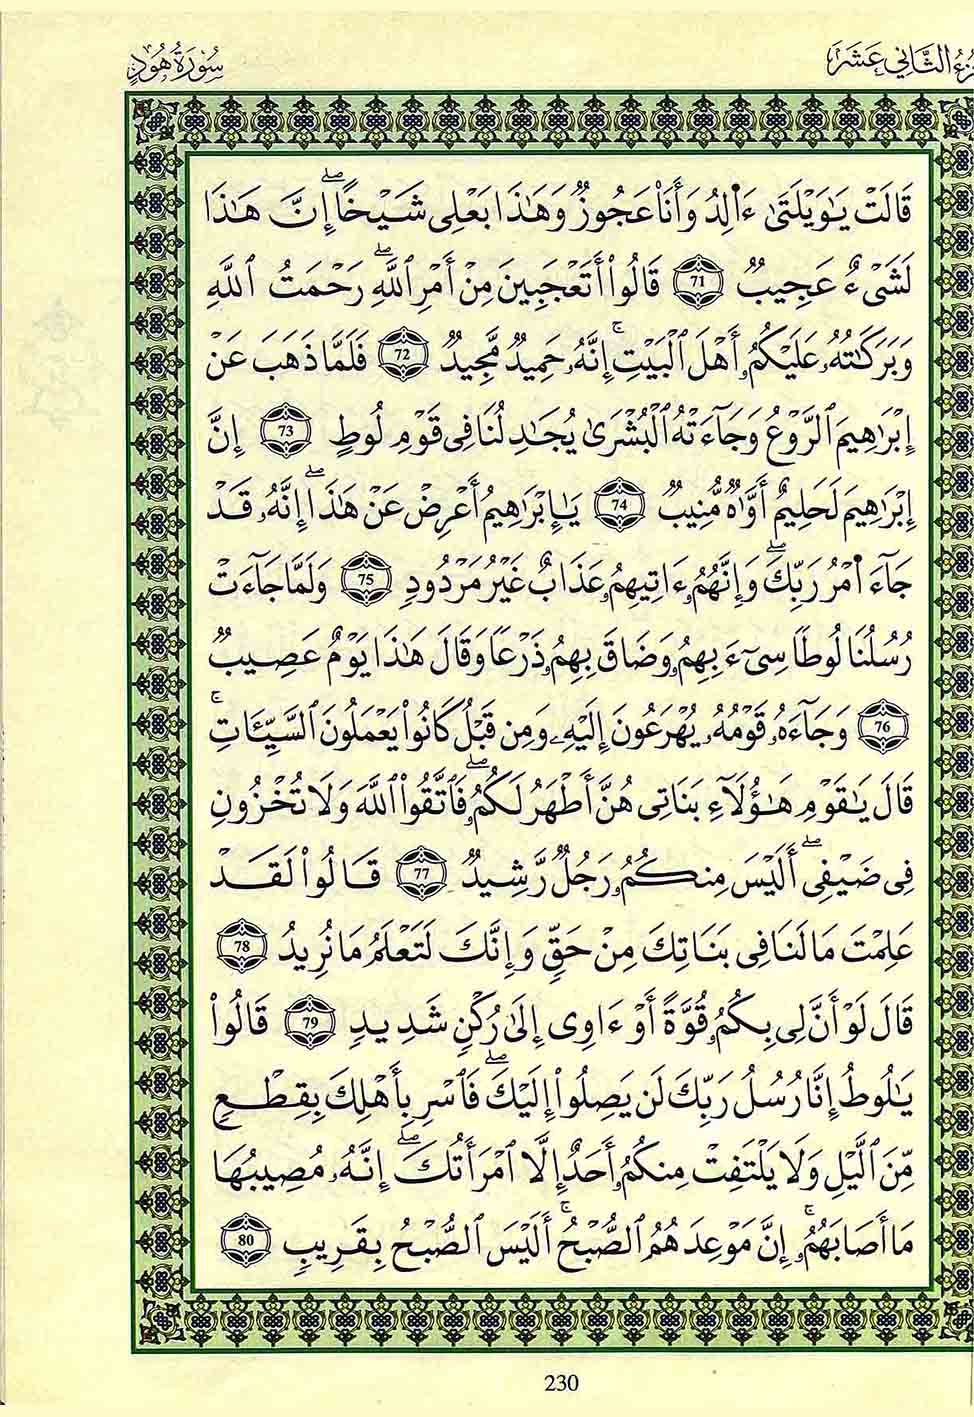 الثَّانِي عَشَرَ
سُورَةُ هُودٍ
قَالَتْ يَـٰوَيْلَتَىٰ ءَا۬لِدُ وَأَنَا۠ عَجُوزٌ وَهَـٰذَا بَعْلِى شَيْخًا ۖ إِنَّ هَـٰذَا
لَشَىْءٌ عَجِيبٌ 71 قَالُوٓا۟ أَتَعْجَبِينَ مِنْ أَمْرِ ٱللَّهِ ۖ رَحْمَتُ ٱللَّهِ
وَبَرَكَـٰتُهُۥ عَلَيْكُمُۥٓ أَهْلَ ٱلْبَيْتِ ۚ إِنَّهُۥ حَمِيدٌ مَّجِيدٌ 72 فَلَمَّا ذَهَبَ عَنْ
إِبْرَٰهِيمَ ٱلرَّوْعُ وَجَآءَتْهُ ٱلْبُشْرَىٰ يُجَـٰدِلُنَا فِى قَوْمِ لُوطٍ 73 إِنَّ
إِبْرَٰهِيمَ لَحَلِيمٌ أَوَّٰهٌ مُّنِيبٌ 74 يَـٰٓإِبْرَٰهِيمُ أَعْرِضْ عَنْ هَـٰذَآ ۖ إِنَّهُۥ قَدْ
جَآءَ ا۬مْرُ رَبِّكَ ۖ وَإِنَّهُمُۥٓ ءَاتِيهِمُۥ عَذَابٌ غَيْرُ مَرْدُودٍ 75 وَلَمَّا جَآءَتْ
رُسُلُنَا لُوطًا سِىٓءَ بِهِمُۥ وَضَاقَ بِهِمُۥ ذَرْعًا وَقَالَ هَـٰذَا يَوْمٌ عَصِيبٌ
76 وَجَآءَهُۥ قَوْمُهُۥ يُهْرَعُونَ إِلَيْهِۦ وَمِن قَبْلُ كَانُوا۟ يَعْمَلُونَ ٱلسَّيِّـَٔاتِ ۚ
قَالَ يَـٰقَوْمِ هَـٰٓؤُلَآءِ بَنَاتِى هُنَّ أَطْهَرُ لَكُمُۥ ۖ فَٱتَّقُوا۟ ٱللَّهَ وَلَا تُخْزُونِ
فِى ضَيْفِىٓ ۖ أَلَيْسَ مِنكُمُۥ رَجُلٌ رَّشِيدٌ 77 قَالُوا۟ لَقَدْ
عَلِمْتَ مَا لَنَا فِى بَنَاتِكَ مِنْ حَقٍّ وَإِنَّكَ لَتَعْلَمُ مَا نُرِيدُ 78
قَالَ لَوْ أَنَّ لِى بِكُمُۥ قُوَّةً أَوْ ءَاوِىٓ إِلَىٰ رُكْنٍ شَدِيدٍ 79 قَالُوا۟
يَـٰلُوطُ إِنَّا رُسُلُ رَبِّكَ لَن يَصِلُوٓا۟ إِلَيْكَ ۖ فَٱسْرِ بِأَهْلِكَ بِقِطْعٍ
مِّنَ ٱلَّيْلِ وَلَا يَلْتَفِتْ مِنكُمُۥٓ أَحَدٌ إِلَّا ٱمْرَأَتُكَ ۖ إِنَّهُۥ مُصِيبُهَا
مَآ أَصَابَهُمُۥٓ ۚ إِنَّ مَوْعِدَهُمُ ٱلصُّبْحُ ۚ أَلَيْسَ ٱلصُّبْحُ بِقَرِيبٍ 80
230